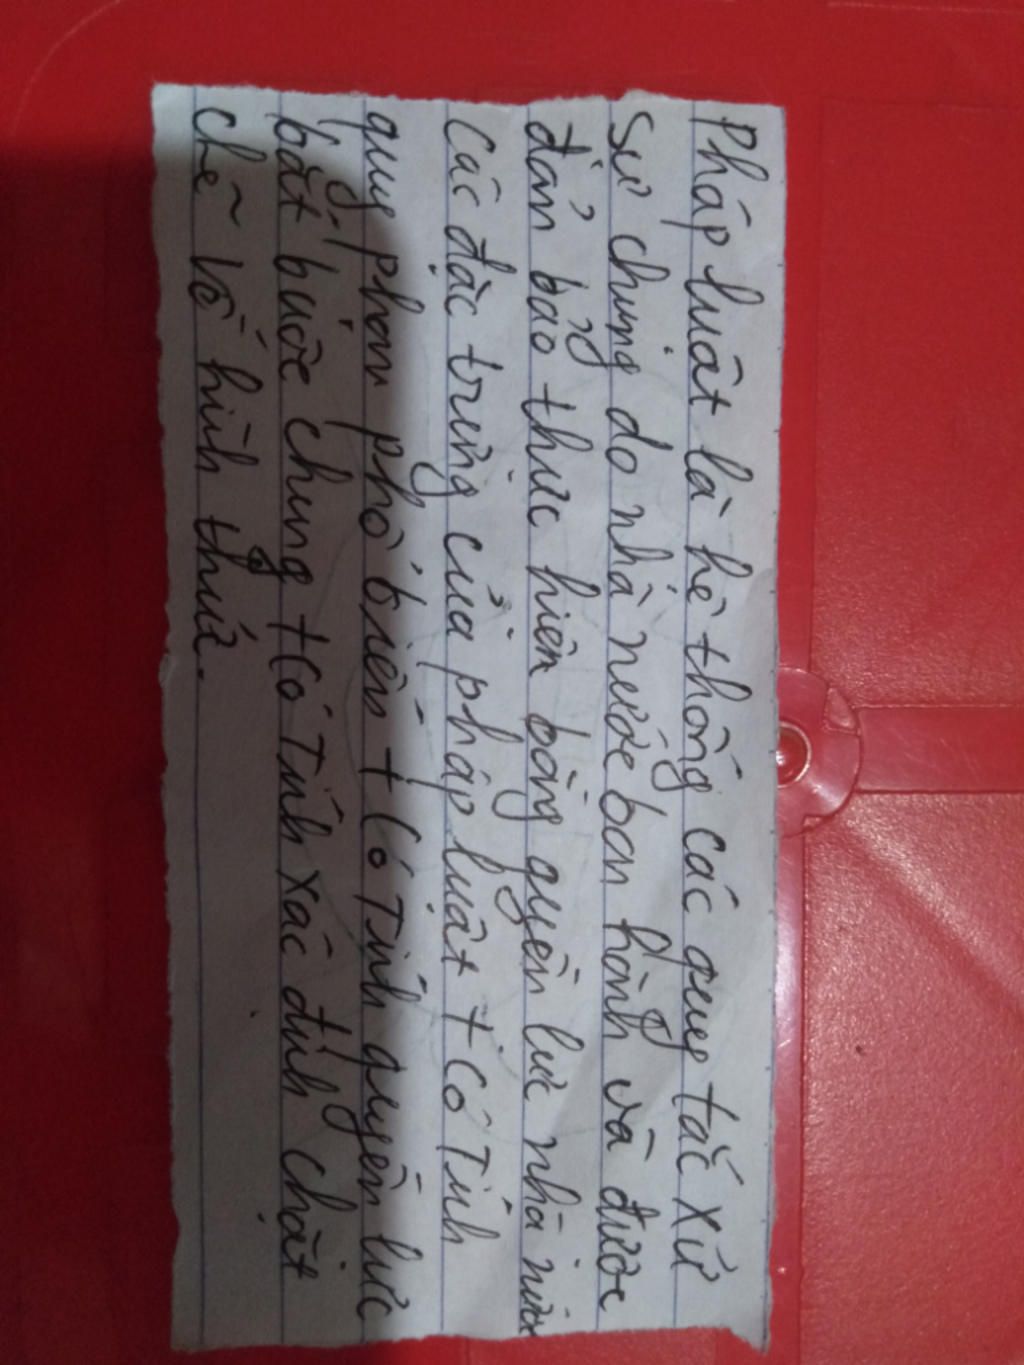 Pháp luật là hệ thống các quy tắc xử
sự chung do nhà nước ban hành và được
đảm bảo thực hiện bằng quyền lực nhà nước
Các đặc trưng của pháp luật + Có Tính
quy phạm phổ biến + Có Tính quyền lực
bắt buộc chung + Có Tính xác định chặt
chẽ về hình thức.